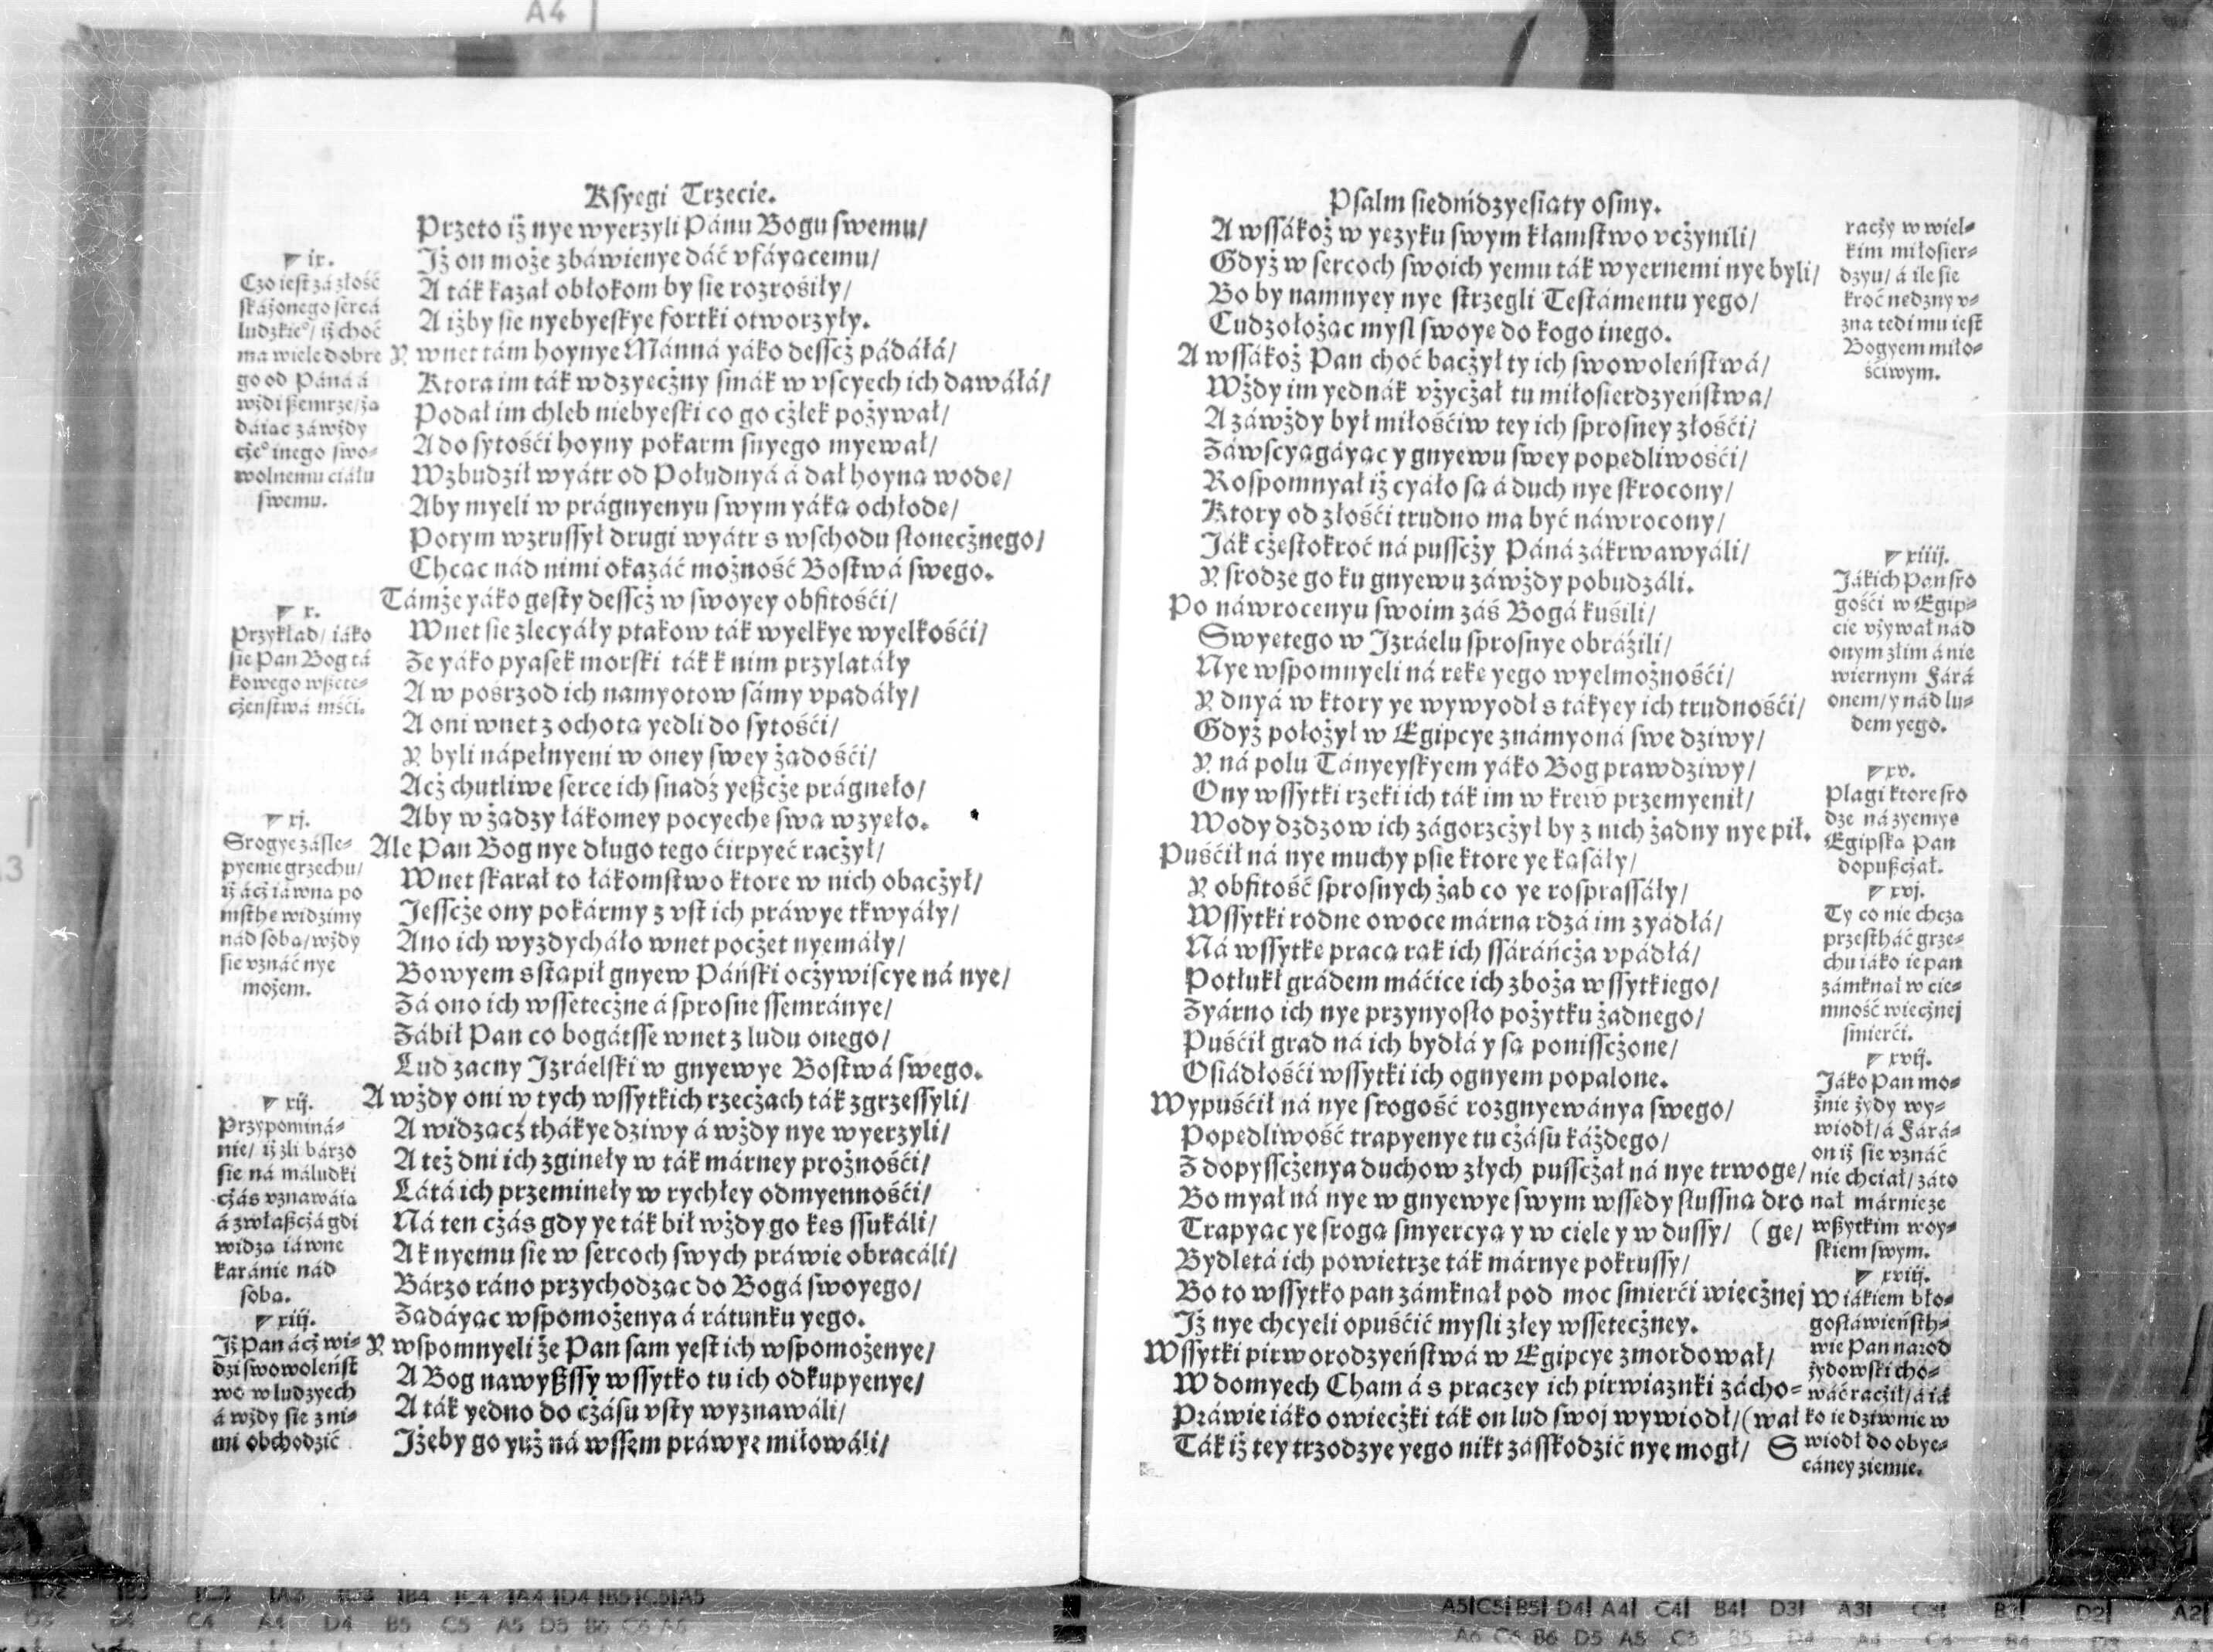 A4
Ksyęgi Trzecie.
Przeto iż nye wyerzyli Pánu Bogu swemu/
Jż on może zbáwienye dáć vfáyącemu/
A ták kazał obłokom by sie rozrośiły/
A iżby sie nyebyeskye fortki otworzyły.
Y wnet tám hoynye Mánná yáko desscż pádáłá/
Ktora im ták wdzyecżny smák w vscyech ich dawáłá/
Podał im chleb niebyeski co go cżłek pożywał/
A do sytośći hoyny pokarm snyego myewał/
Wzbudził wyátr od Południyá á dał hoyną wodę/
Aby myeli w prágnyenyu swym yáką ochłodę/
Potym wzrussył drugi wyátr s wschodu słonecżnego/
Chcąc nád nimi okazáć możność Bostwá swego.
Támże yáko gęsty desscż w swoyey obfitośći/
Wnet sie zlecyáły ptakow ták wyelkye wyelkośći/
Że yáko pyasek morski ták k nim przylatáły
A w pośrzod ich namyotow sámy vpadáły/
A oni wnet z ochotą yedli do sytośći/
Y byli nápełnyeni w oney swey żądośći/
Acż chutliwe serce ich snadź yeßcże prágnęło/
Aby w żądzy łákomey pocyechę swą wzyęło.
Ale Pan Bog nye długo tego ćirpyeć racżył/
Wnet skarał to łákomstwo ktore w nich obacżył/
Jesscże ony pokármy z vst ich práwye tkwyáły/
Ano ich wyzdycháło wnet pocżet nyemáły/
Bowyem sstąpił gnyew Páński ocżywiscye ná nye/
Zá ono ich wssetecżne á sprosne ssemránye/
Zábił Pan co bogátsse wnet z ludu onego/
Lud zacny Jzráelski w gnyewye Bostwá swego.
A wżdy oni w tych wssytkich rzecżach ták zgrzessyli/
A widzącż thákye dziwy á wżdy nye wyerzyli/
A też dni ich zginęły w ták márney prożnośći/
Látá ich przeminęły w rychłey odmyennośći/
Ná ten cżás gdy ye ták bił wżdy go kęs ssukáli/
A k nyemu sie w sercoch swych práwie obracáli/
Bárzo ráno przychodząc do Bogá swoyego/
Żądáyąc wspomożenya á rátunku yego.
Y wspomnyeli że Pan sam yest ich wspomożenye/
A Bog nawyßssy wssytko tu ich odkupyenye/
A ták yedno do cżásu vsty wyznawáli/
Jżeby go yuż ná wssem práwye miłowáli/
ix.
Czo iest zá złość
skáżonego sercá
ludzkieº/ iż choć
ma wiele dobre
go od Páná á
wżdi ßemrze/żą
dáiąc záwżdy
cżeº inego swo-
wolnemu ciáłu
swemu.
x.
Przykład/ iáko
sie Pan Bog tá
kowego wßete-
cżeństwá mśći.
xj.
Srogye záśle-
pyenie grzechu/
iż ácż iáwną po
msthę widzimy
nád sobą/wżdy
sie vznáć nye
możem.
xij.
Przypominá-
nie/ iż zli bárzo
sie ná máludki
cżás vznawáią
á zwłaßcżá gdi
widzą iáwne
karánie nád
sobą.
xiij.
Jż Pan ácż wi-
dzi swowoleńst
wo w ludzyech
á wżdy sie z ni-
mi obchodzić
Psalm siedmdzyesiąty osmy.
A wssákoż w yęzyku swym kłamstwo vcżynili/
Gdyż w sercoch swoich yemu ták wyernemi nye byli/
Bo by namnyey nye strzegli Testámentu yego/
Cudzołożąc mysl swoye do kogo inego.
A wssákoż Pan choć bacżył ty ich swowoleństwá/
Wżdy im yednák vżycżał tu miłosierdzyeństwa/
A záwżdy był miłośćiw tey ich sprosney złośći/
Záwscyągáyąc y gnyewu swey popędliwośći/
Rospomnyał iż cyáło są á duch nye skrocony/
Ktory od złośći trudno ma być náwrocony/
Ják cżęstokroć ná pusscży Páná zákrwawyáli/
Y srodze go ku gnyewu záwżdy pobudzáli.
Po náwrocenyu swoim záś Bogá kuśili/
Swyętego w Jzráelu sprosnye obráźili/
Nye wspomnyeli ná rękę yego wyelmożnośći/
Y dnyá w ktory ye wywyodł s tákyey ich trudnośći/
Gdyż położył w Egipcye známyoná swe dziwy/
Y ná polu Tányeyskyem yáko Bog prawdziwy/
Ony wssytki rzeki ich ták im w krew przemyenił/
Wody dżdżow ich zágorzcżył by z nich żadny nye pił.
Puśćił ná nye muchy psie ktore ye kąsáły/
Y obfitość sprosnych żab co ye rosprassáły/
Wssytki rodne owoce márna rdzá im zyádłá/
Ná wssytkę pracą rąk ich ssáráńcża vpádłá/
Potłukł grádem máćice ich zboża wssytkiego/
Zyárno ich nye przynyosło pożytku żadnego/
Puśćił grad ná ich bydłá y są ponisscżone/
Osiádłośći wssytki ich ognyem popalone.
Wypuśćił ná nye srogość rozgnyewánya swego/
Popędliwość trapyenye tu cżásu káżdego/
Z dopysscżenya duchow złych pusscżał ná nye trwogę/
Bo myał ná nye w gnyewye swym wssędy słussną dro
Trapyąc ye srogą smyercyą y w ciele y w dussy/ (gę/
Bydlętá ich powietrze ták márnye pokrussy/
Bo to wssytko pan zámknął pod moc smierći wiecżnej
Jż nye chcyeli opuśćić mysli złey wssetecżney.
Wssytki pirworodzyeństwá w Egipcye zmordował/
W domyech Cham á s praczey ich pirwiąznki zácho-
Práwie iáko owiecżki ták on lud swoj wywiodł/(wał
Ták iż tey trzodzye yego nikt zásskodzić nye mogł/ S
racży w wiel-
kim miłosier-
dzyu/ á ile sie
kroć nędzny v-
zna tedi mu iest
Bogyem miło-
śćiwym.
xiiij.
Jákich Pan sro
gośći w Egip-
cie vżywał nád
onym złim á nie
wiernym Fárá
onem/ y nád lu-
dem yego.
xv.
Plagi ktore sro
dze ná zyemyę
Egipską Pan
dopußcżał.
xvj.
Ty co nie chczą
przestháć grze-
chu iáko ie pan
zámknął w cie-
mność wiecżnej
śmierći.
xvij.
Jáko Pan mo-
żnie żydy wy-
wiodł/á Fárá-
on iż sie vznáć
nie chciał/ záto
nął márnie ze
wßytkim woy-
skiem swym.
xviij.
W iákiem bło-
gosławieństh-
wie Pan narod
żydowski cho-
wáć racżił/á iá
ko ie dziwnie w
wiodł do obye-
cáney ziemie.